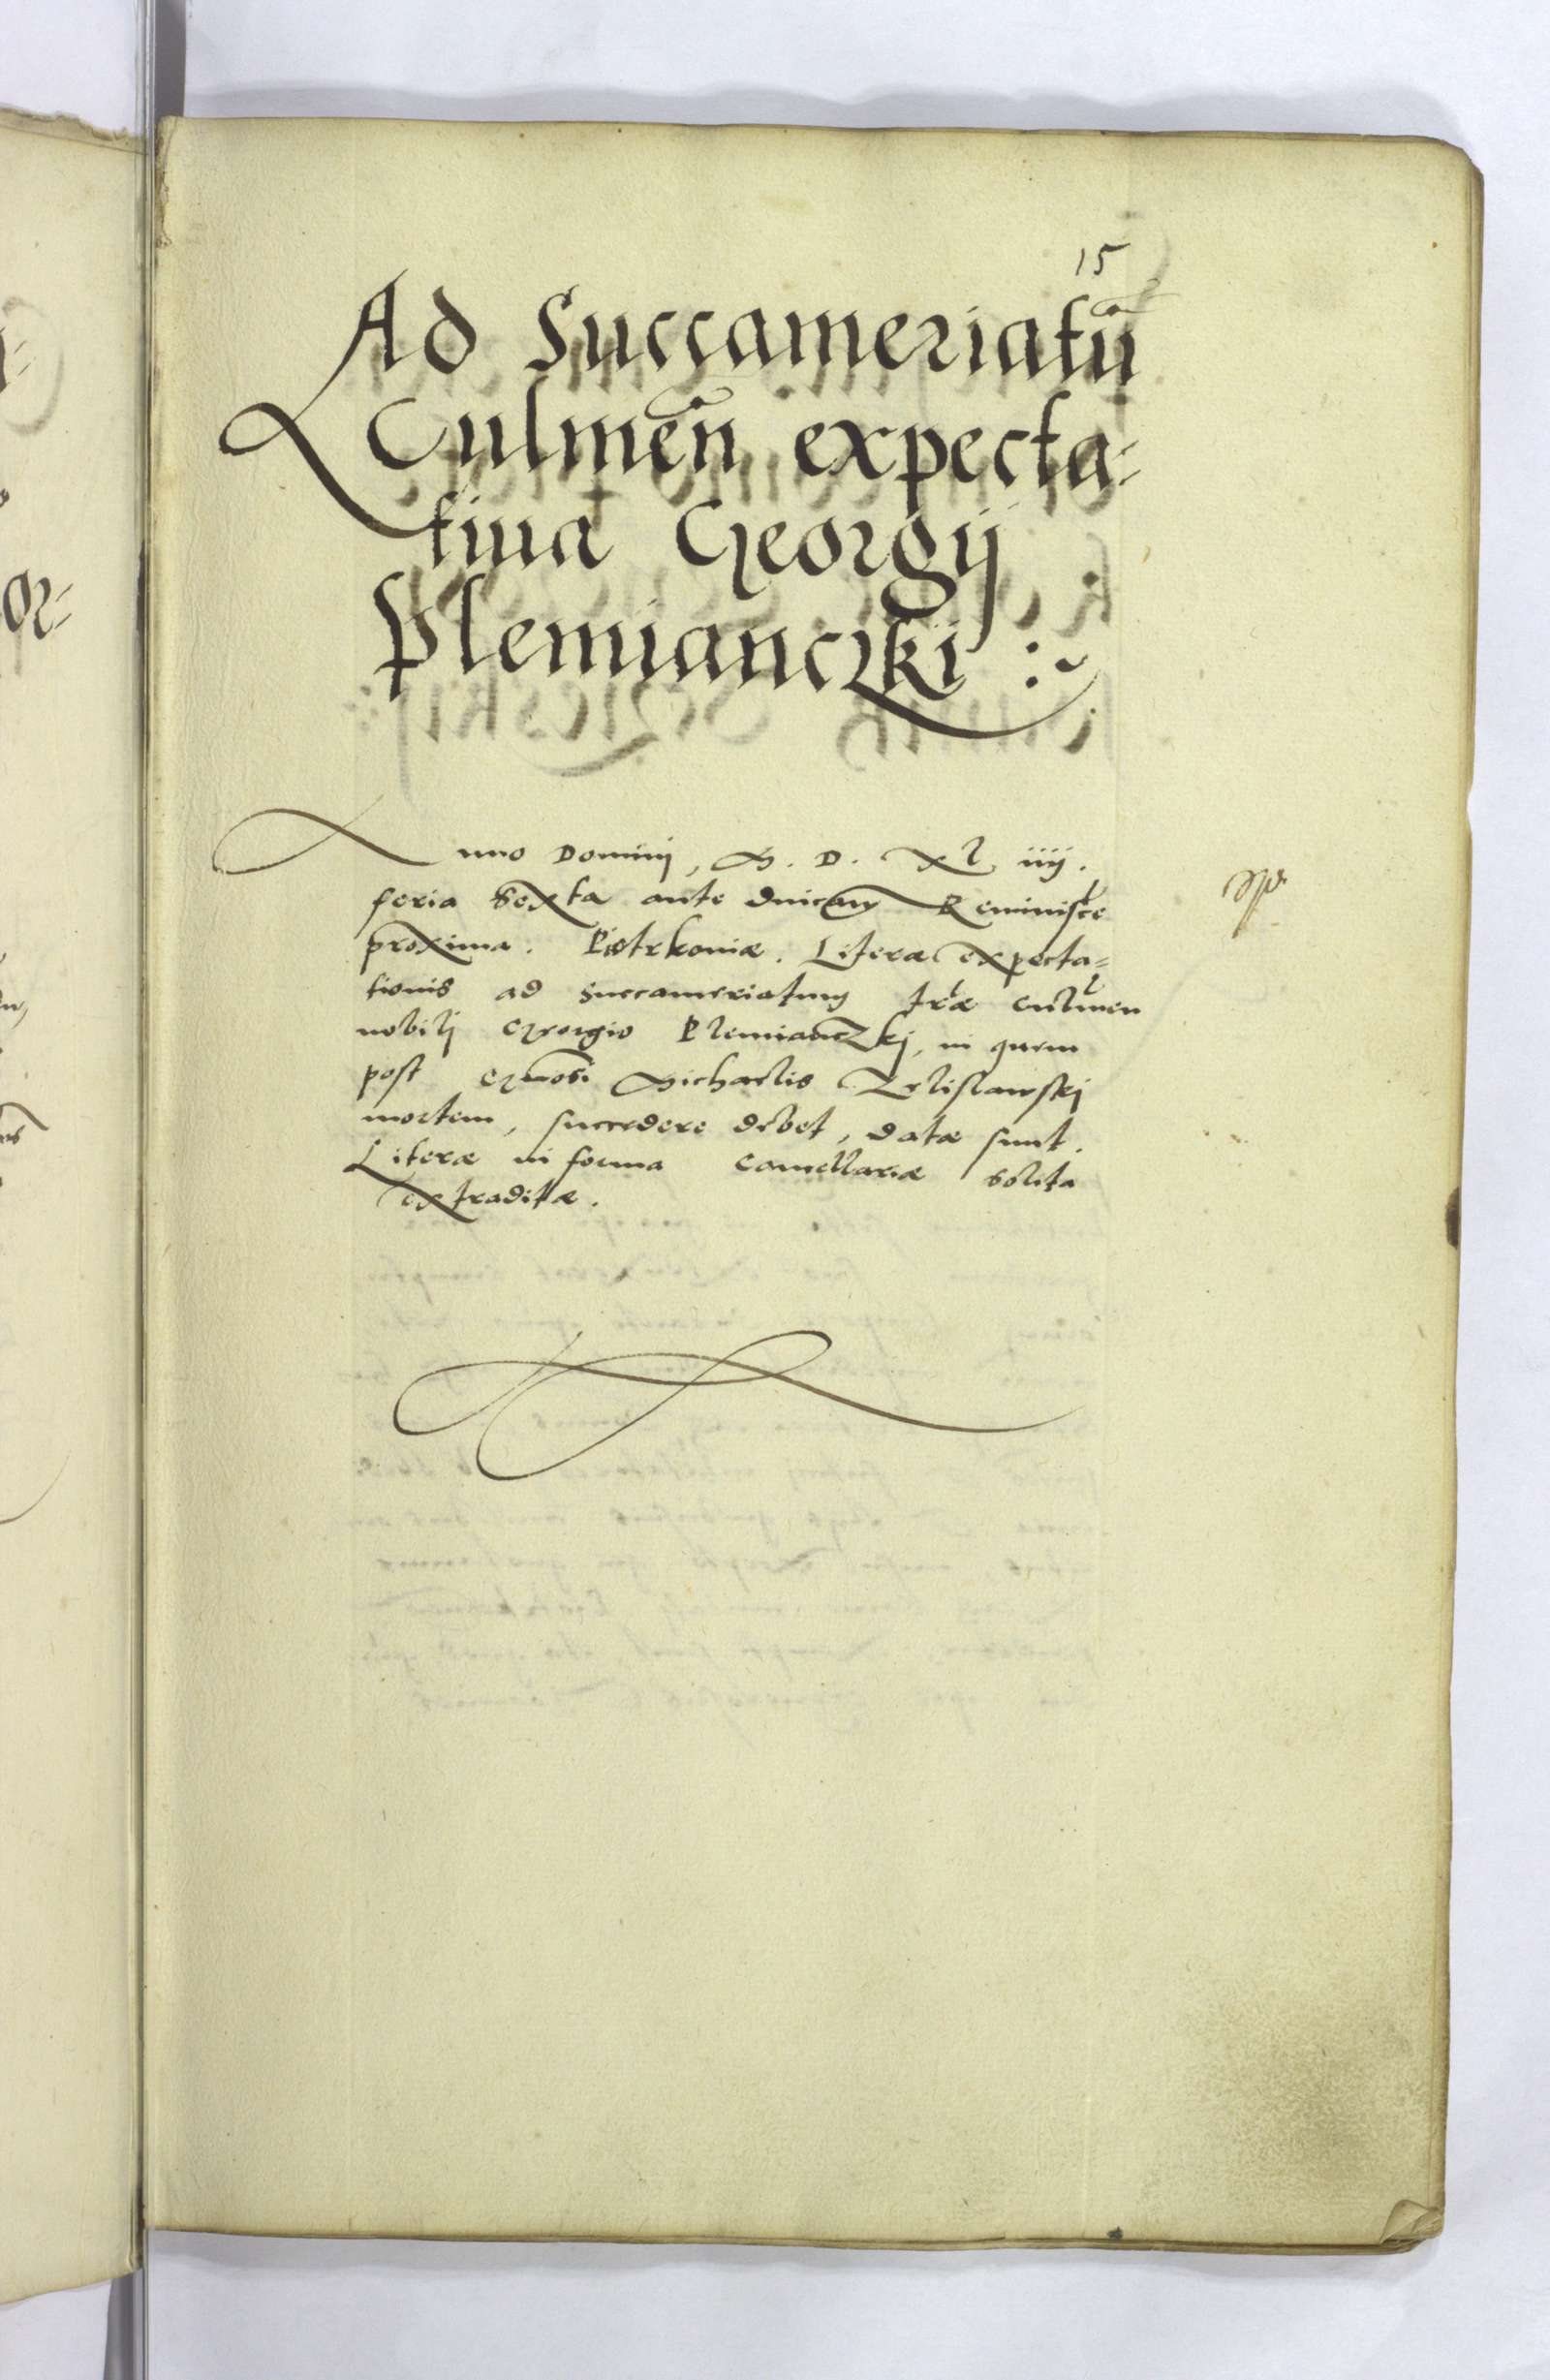 15
Ad Succameriatũ
Culmeñ expecta-
tiua Georgij
Plemianczki :~
Anno Domini, M. D. XL iiij.
feria Sexta ante dnicam Reminisce
proxima. Piotrkouiæ. Literæ expecta=
tionis ad Succameriatum træ Culmen
nobilj Georgio Plemianczkj, in quem
post Gnosi Michaelis Zelislawskj
mortem, succedere debet, datæ sunt.
Literæ in forma Cancellariæ solita
extraditæ.